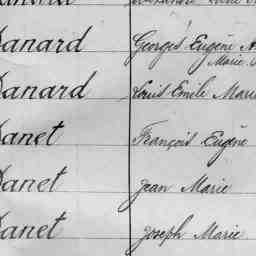 Danard Georges Eugène
Marie
Danard Louis Emile Marie
Danet François Eugène
Danet Jean Marie
Danet Joseph Marie